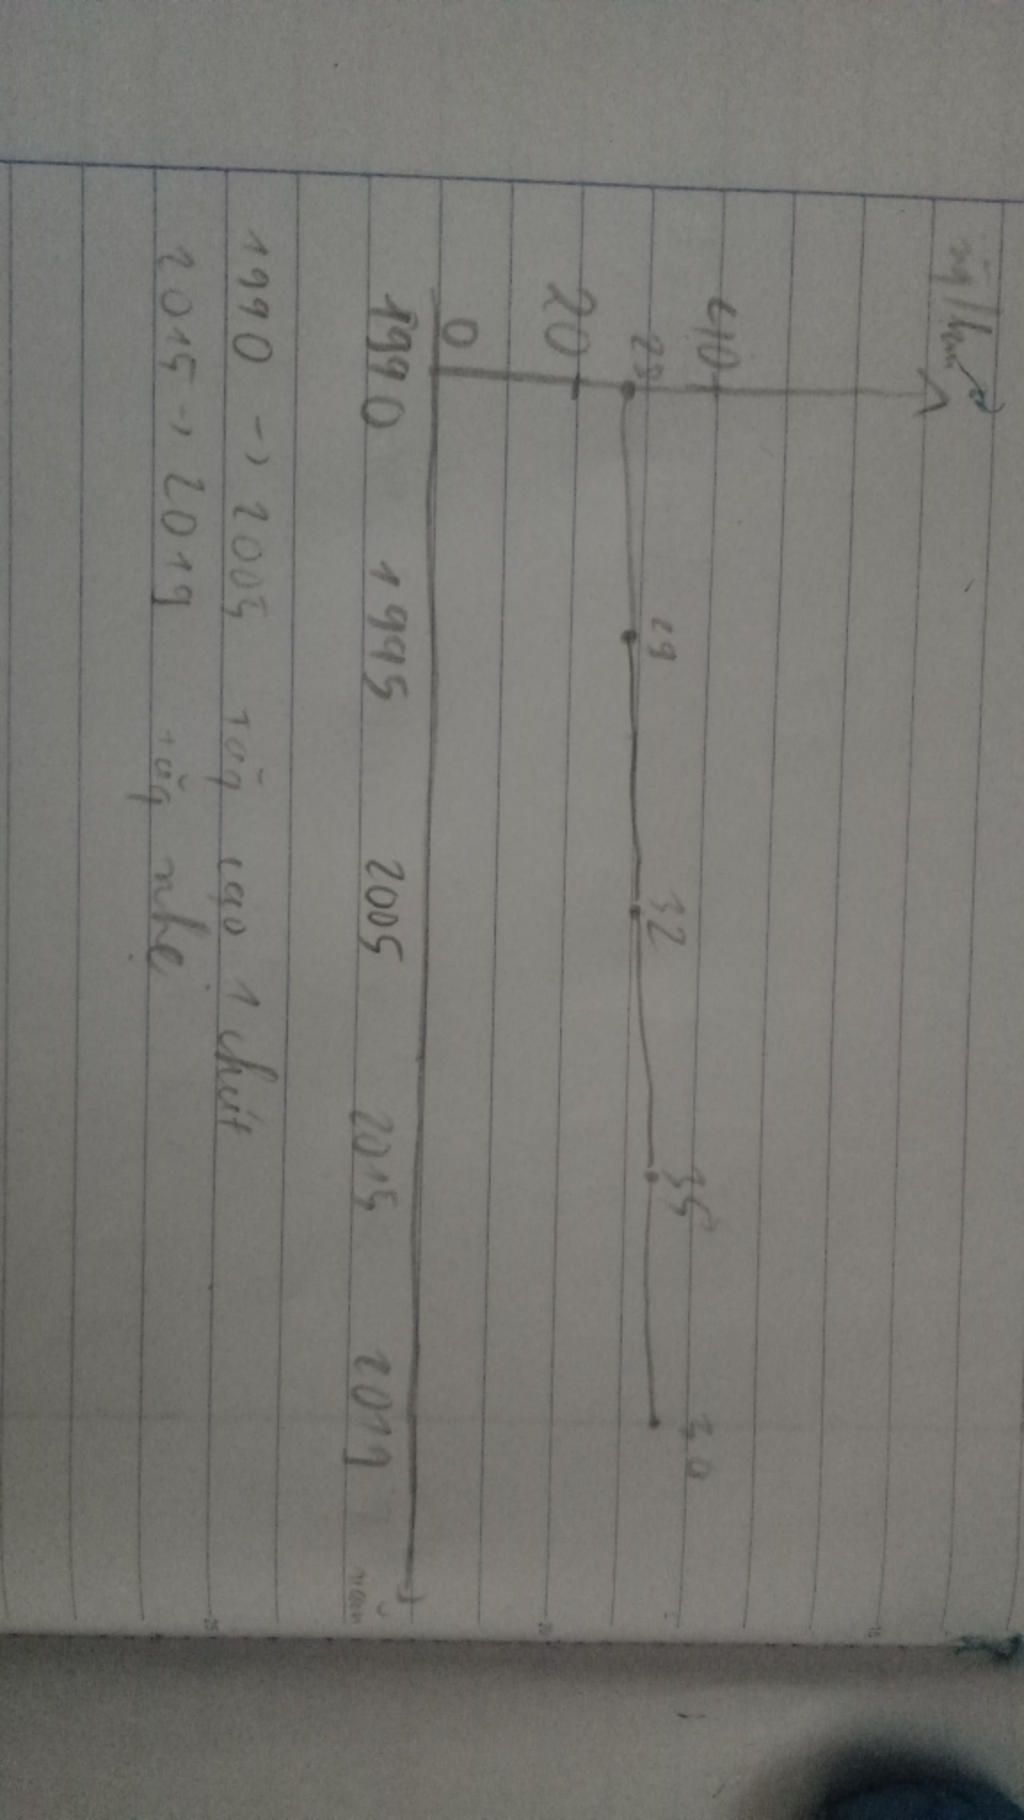 40
20
0
29
32
35
1990 1995 2005 2015 2019
năm
1990 -> 2005 tăng cao 1 chút
2015 -> 2019 tăng nhẹ